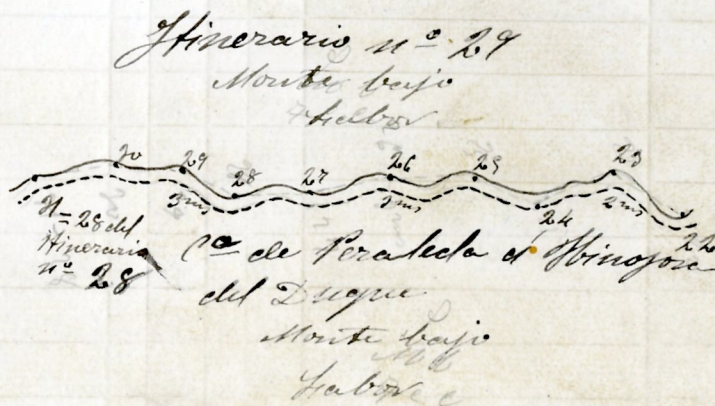 Itinerario nº 29
Monte bajo
Labor
30 29 28 27 26 25 23
3 ms 3 ms 24 2 ms 22
N = 28 del
Itinerario
nº 28
Cº de Peraleda á Hinojosa
del Duque
Monte bajo
Labor